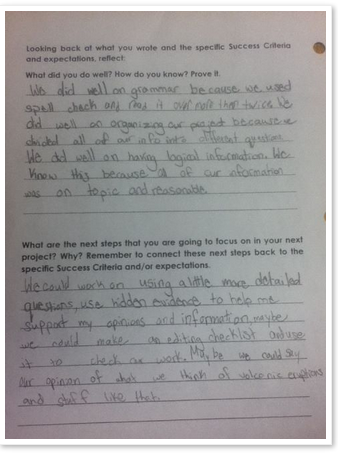 Looking back at what you wrote and the specific Success Criteria
and expectations, reflect:
What did you do well? How do you know? Prove it.
We did well on grammar because we used
spell check and read it over more then twice We
did well on organizing our project because we
divided all of our info into different questions
We did well on having logical information. We
Know this because all of our information
was on topic and reasonable.
What are the next steps that you are going to focus on in your next
project? Why? Remember to connect these next steps back to the
specific Success Criteria and/or expectations.
We could work on using a little more detailed
questions, use hidden evidence to help me
support my opinions and information, maybe
we could make an editing checklist and use
it to check our work. Maybe we could say
our opinion of what we think of volcanic eruptions
and stuff like that.